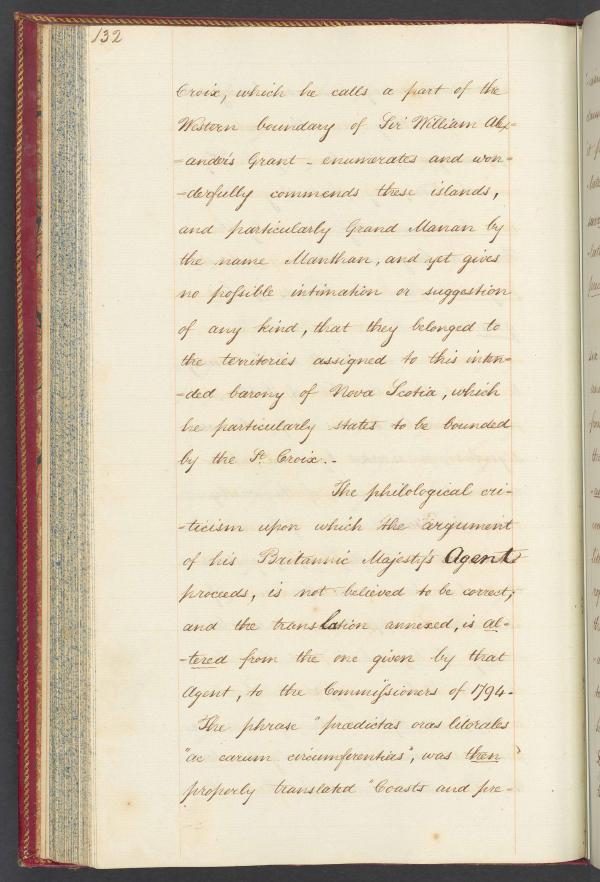 132
Croix, which he calls a part of the
Western boundary of Sir William Alex-
-ander's Grant - enumerates and won-
-derfully commends these islands,
and particularly Grand Manan by
the name Manthan, and yet gives
no possible intimation or suggestion
of any kind, that they belonged to
the territories assigned to this inten-
-ded barony of Nova Scotia, which
he particularly states to be bounded
by the St. Croix.-
The philological cri-
-ticism upon which the argument
of his Britannic Majesty's Agent
proceeds, is not believed to be correct;
and the translation annexed, is al-
-tered from the one given by that
Agent, to the Commissioners of 1794-
The phrase "prædictas oras litorales
"ac earum circumferentias", was then
properly translated "Coasts and pre-